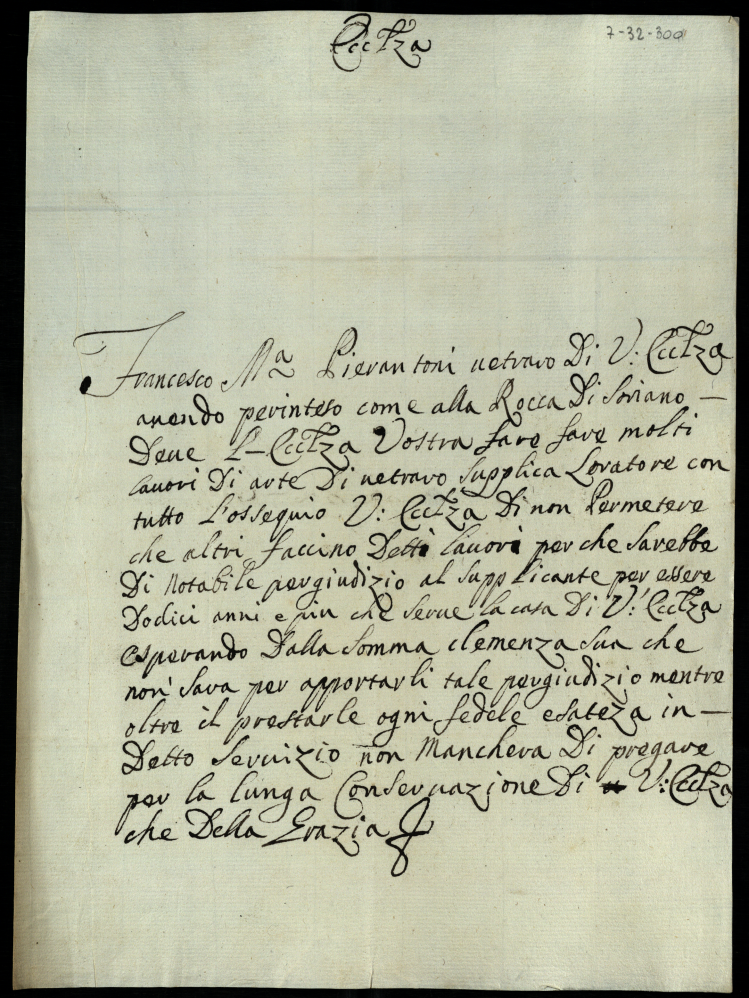 Eccl̃za
7-32-300
Francesco Mª Pierantoni uetraro Di V: Eccl̃za
auendo perinteso come alla Rocca Di Soriano —
Deue L— Eccl̃za Vostra fare fare molti
lauori Di arte Di uetraro Supplica Loratore con
tutto L'ossequio V: Eccl̃za Di non Permetere
che altri faccino Detti lauori per che Sarebbe
Di Notabile pergiudizio al Supplicante per essere
Dodici anni e piu che Serue la casa Di V: Eccl̃za
esperando Dalla Somma clemenza Sua che
non Sara per apportarli tale pergiudizio mentre
oltre il prestarle ogni fedele esateza in —
Detto Seruizio non Manchera Di pregare
per la lunga Conseruazione Di V: Eccl̃za
che Della Grazia